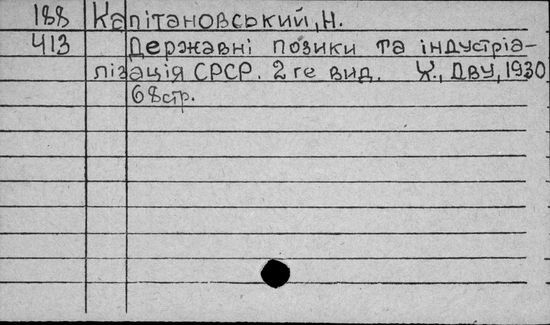 188 Капітановський, Н.
413 Державні позики та індустріа-
лізація СРСР. 2ге вид. Х., ДВУ, 1930
68стр.